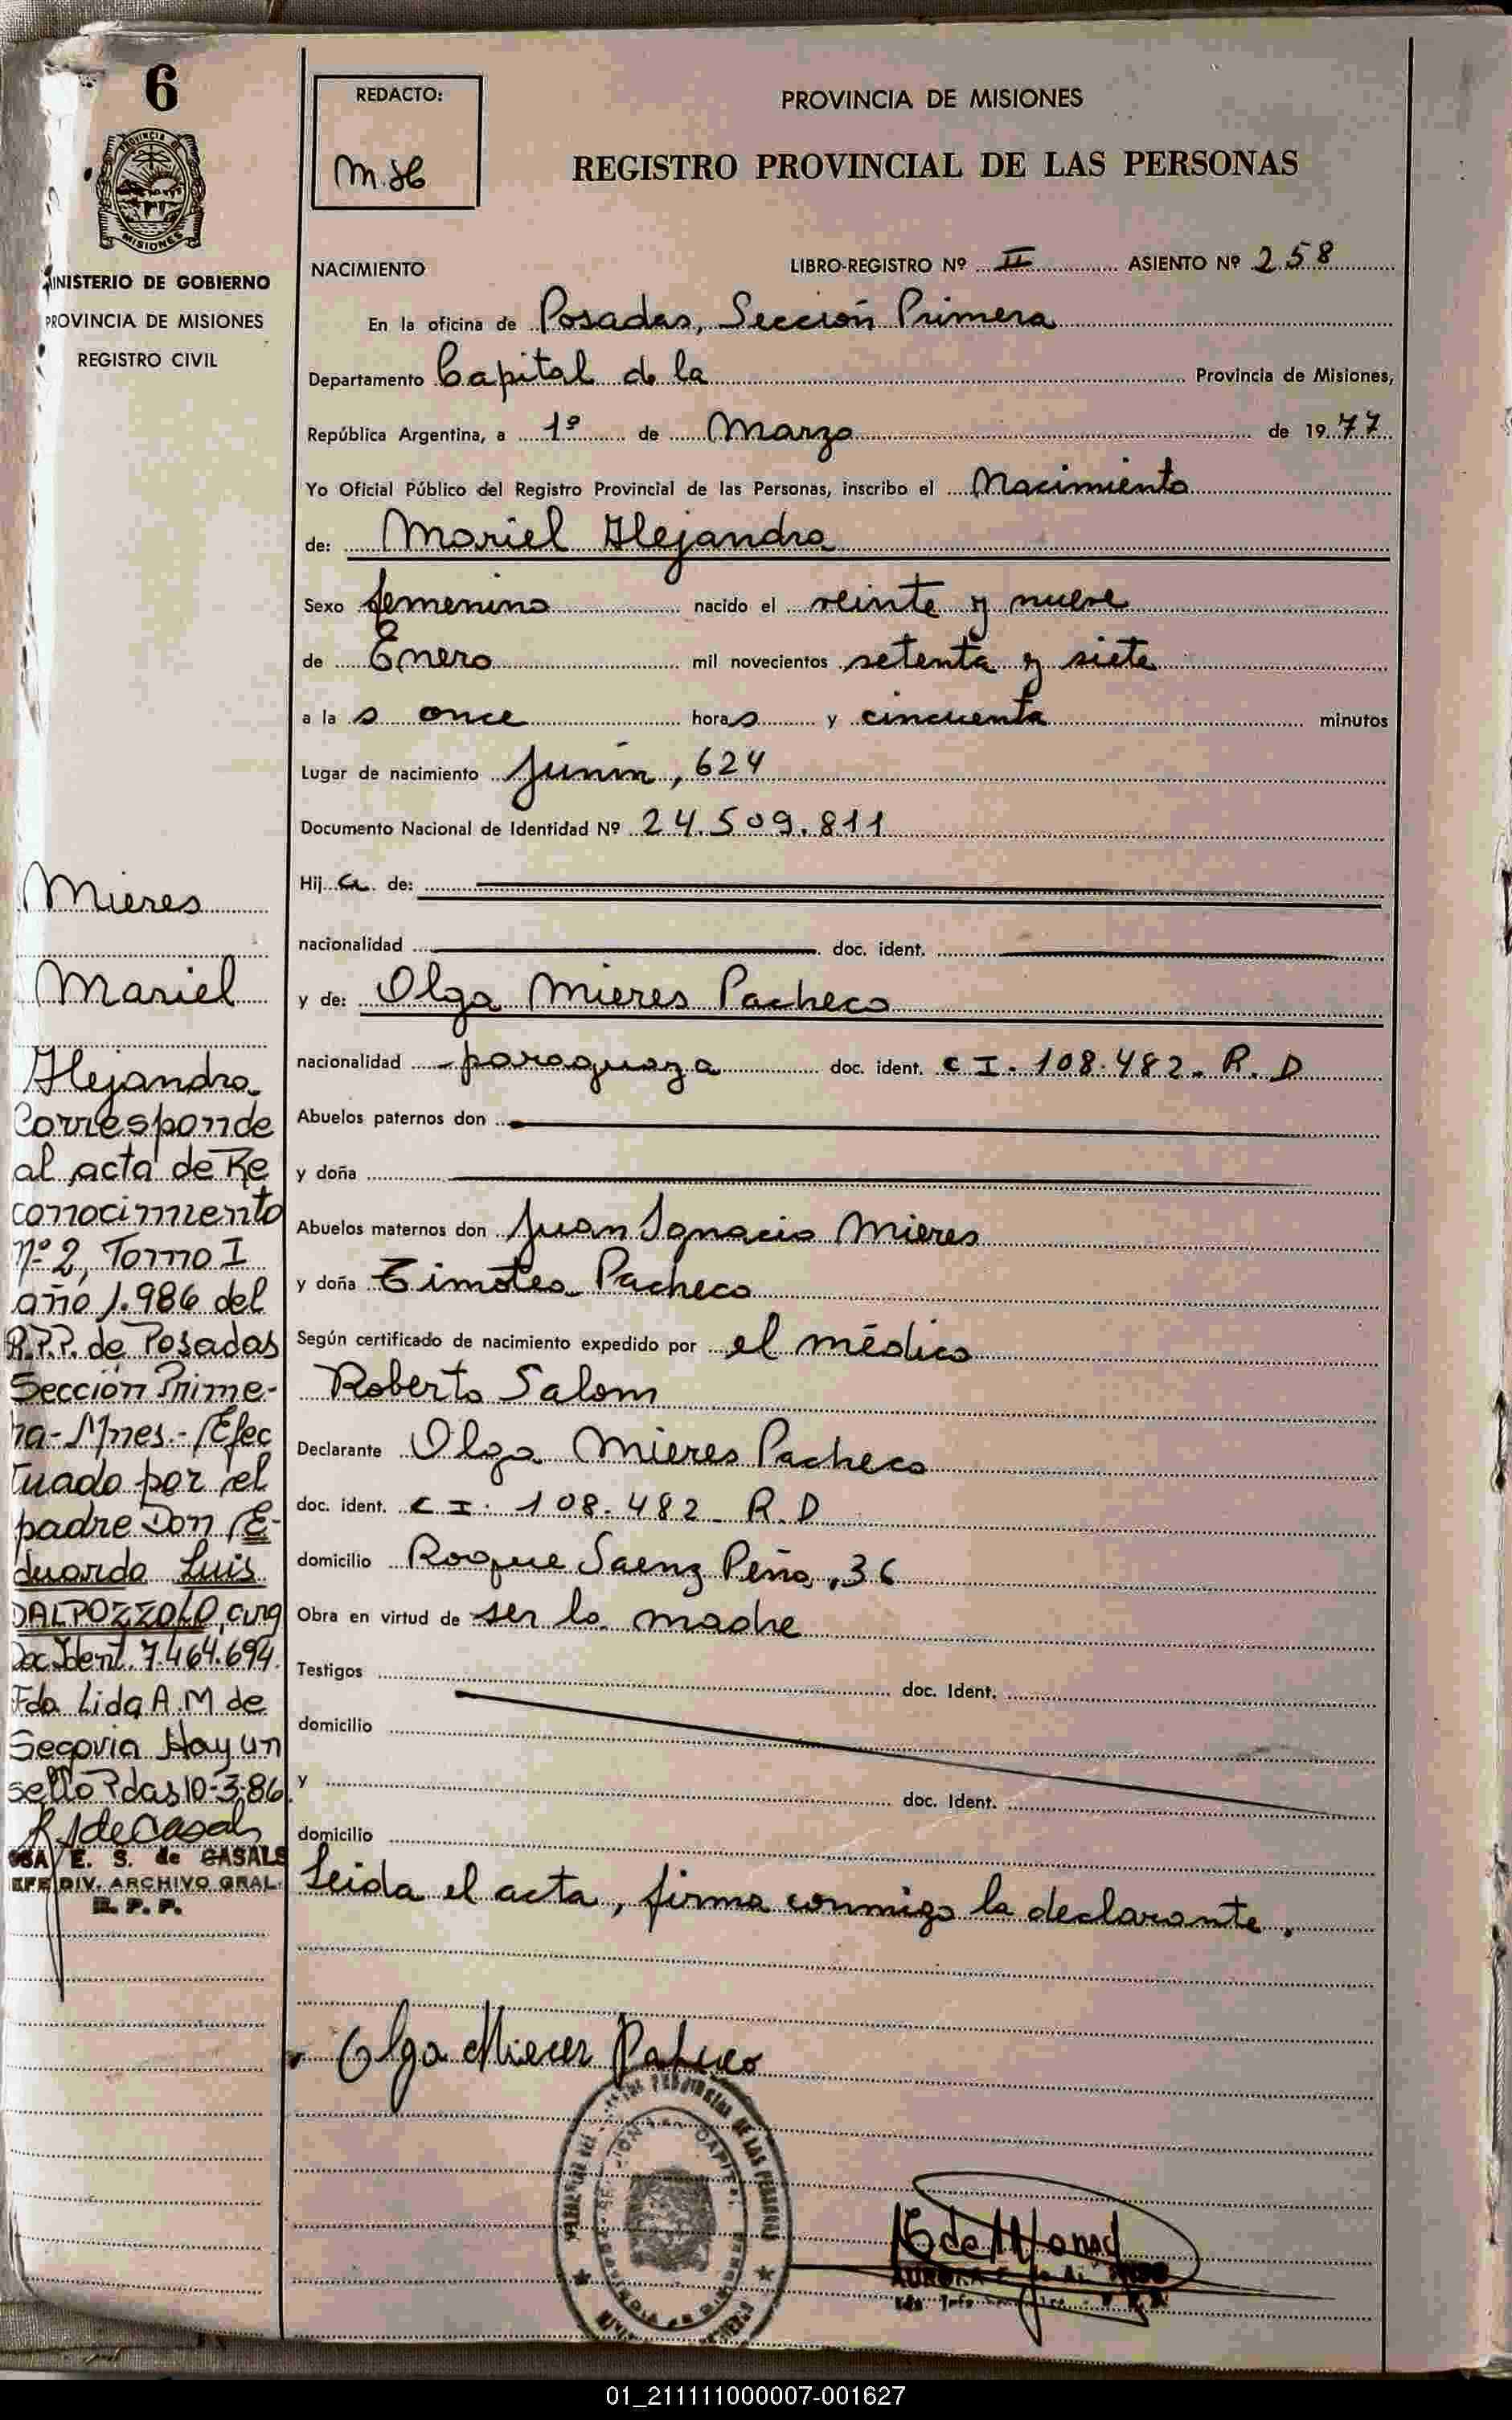 6
PROVINCIA DE
MISIONES
MINISTERIO DE GOBIERNO
PROVINCIA DE MISIONES
REGISTRO CIVIL
REDACTO:
PROVINCIA DE MISIONES
REGISTRO PROVINCIAL DE LAS PERSONAS
NACIMIENTO LIBRO-REGISTRO Nº II ASIENTO Nº 258
En la oficina de Posadas, Sección Primera
Departamento Capital de la Provincia de Misiones,
República Argentina, a 1º de Marzo de 1977
Yo Oficial Público del Registro Provincial de las Personas, inscribo el Nacimiento
de: Mariel Alejandra
Sexo femenino nacido el veinte y nueve
de Enero mil novecientos setenta y siete
a las once horas y cincuenta minutos
Lugar de nacimiento Junín, 624
Documento Nacional de Identidad Nº 24.509.811
Hija de:
nacionalidad doc. ident.
y de: Olga Mieres Pacheco
nacionalidad paraguaya doc. ident. C I. 108.482. R. D
Abuelos paternos don
y doña
Abuelos maternos don Juan Ignacio Mieres
y doña Timotea Pacheco
Según certificado de nacimiento expedido por el médico
Roberto Salom
Declarante Olga Mieres Pacheco
doc. ident. C I. 108.482 R.D
domicilio Roque Saenz Peña, 36
Obra en virtud de ser la madre
Testigos doc. Ident.
domicilio
y doc. Ident.
domicilio
Leida el acta, firma conmigo la declarante.
Olga Mieres Pacheco
Mieres
Mariel
Alejandra
Corresponde
al acta de Re
conocimiento
nº 2, Tomo I
año 1.986 del
R.P.P. de Posadas
Sección Prime-
ra-Mnes.- Efec
tuado por el
padre Don E-
duardo Luis
DALPOZZOLO, arg
Doc.Ident. 7.464.694.
Fdo Lida A.M de
Segovia Hay un
sello Pdas 10-3-86.
E. S. de CASALS
DIV. ARCHIVO GRAL.
R. P. P.
01_211111000007-001627